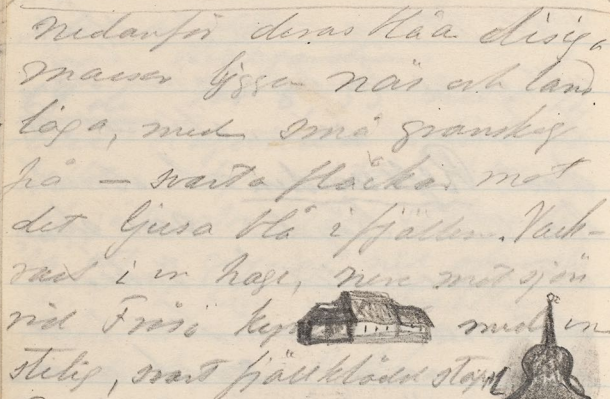 nedanför deras blåa disiga
massor ligger näs och land
låga, med små granskog
på — svarta fläckar mot
det ljusa blå i fjällen. Vack-
rast i en hage, nere mot sjön
vid Frösö med en
stilig, svart fjällklädd stapel